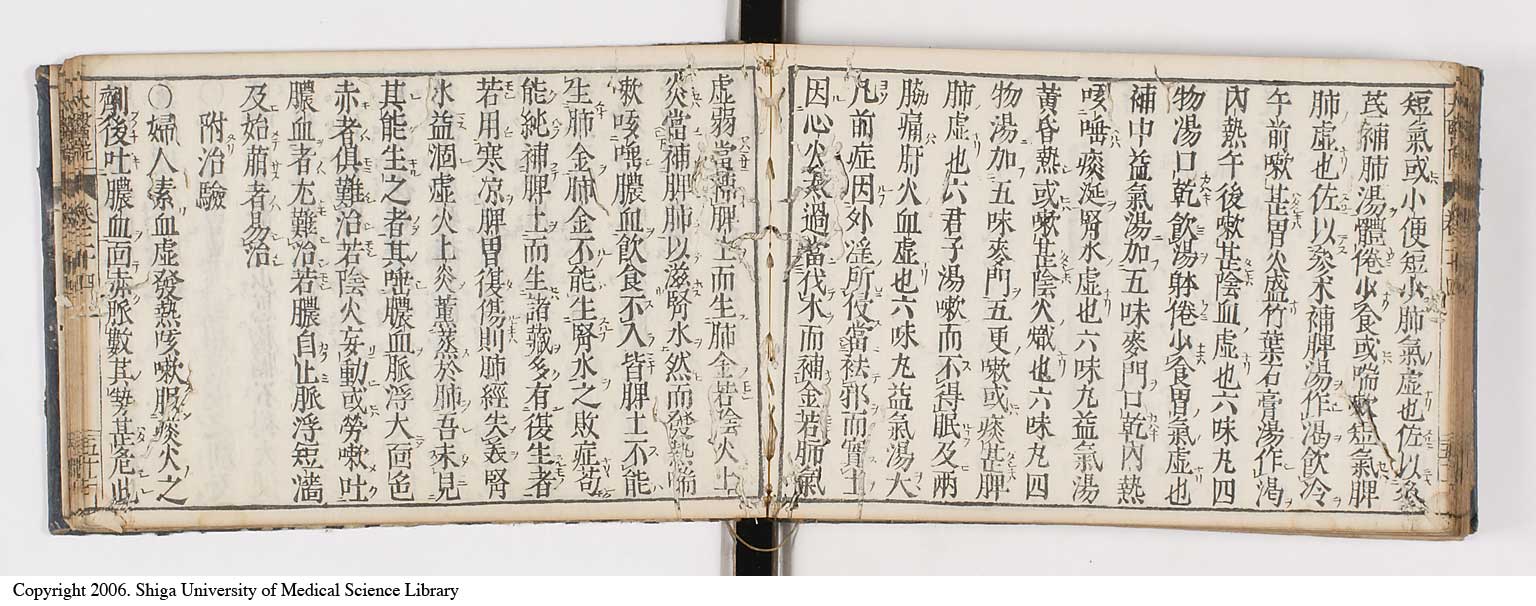 短氣或小便短少肺氣虚也佐以參
芪補肺湯體倦少食或喘嗽短氣脾
肺虚也佐以參朮補脾湯作渇飲冷
午前嗽甚胃火盛竹葉石膏湯作渇
内熱午後嗽甚陰血虚也六味丸四
物湯口乾飲湯躰倦少食胃氣虚也
補中益氣湯加五味麥門口乾内熱
咳唾痰涎腎水虚也六味丸益氣湯
黄昏熱或嗽甚陰火熾也六味丸四
物湯加五味麥門五更嗽或痰甚脾
肺虚也六君子湯嗽而不得眠及兩
脇痛肝火血虚也六味丸益氣湯大
凡前症因外淫所侵當袪邪而實土
因心火太過當伐木而補金若肺氣
虚弱當補脾土而生肺金若陰火上
炎當補脾肺以滋腎水然而發熱喘
嗽咳唾膿血飲食不入皆脾土不能
生肺金肺金不能生腎水之敗症苟
能純補脾土而生諸藏多有復生者
若用寒凉脾胃復傷則肺經失養腎
水益涸虚火上炎薰蒸於肺吾未見
其能生之者其唾膿血脈浮大面色
赤者俱難治若陰火妄動或勞嗽吐
膿血者尤難治若膿自止脈浮短濇
及始萠者易治
附治驗
○婦人素血虚發熱咳嗽服痰火之
劑後吐膿血面赤脈數其勢甚危此
卷二十四
Copyright 2006. Shiga University of Medical Science Library